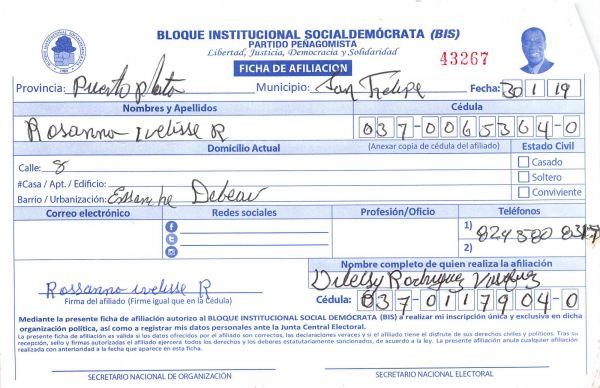 BLOQUE INSTITUCIONAL SOCIALDEMÓCRATA (BIS)
PARTIDO PEÑAGOMISTA
Libertad, Justicia, Democracia y Solidaridad
FICHA DE AFILIACIÓN
43267
Provincia: Puerto Plata Municipio: San Felipe Fecha: 30 1 19
Nombres y Apellidos Cédula
Rosanna ivelisse R 037-0065364-0
Domicilio Actual (Anexar copia de cédula del afiliado) Estado Civil
Calle: 8
Casado
#Casa / Apt. / Edificio:
Soltero
Barrio / Urbanización: Ensanche Dubeau
Conviviente
Correo electrónico Redes sociales Profesión/Oficio Teléfonos
1) 829 380 8317
2)
Nombre completo de quien realiza la afiliación
Rodriguez Vasquez
Rossanna ivelisse R
Firma del afiliado (Firme igual que en la Cédula)
Cédula: 037-0117904-0
Mediante la presente ficha de afiliación autorizo al BLOQUE INSTITUCIONAL SOCIAL DEMÓCRATA (BIS) a realizar mi inscripción única y exclusiva en dicha
organización política, así como a registrar mis datos personales ante la Junta Central Electoral.
La presente ficha de afiliación es válida si los datos ofrecidos por el afiliado son correctos, las declaraciones veraces y si el afiliado tiene el disfrute de sus derechos civiles y políticos. Tras su
recepción, sello y firmas autorizadas el afiliado ejercerá todos los derechos y los deberes estatutariamente sancionados, de acuerdo a la ley. La presente afiliación anula cualquier afiliación
realizada con anterioridad a la fecha que aparece en esta ficha.
SECRETARIO NACIONAL DE ORGANIZACIÓN SECRETARIO NACIONAL ELECTORAL